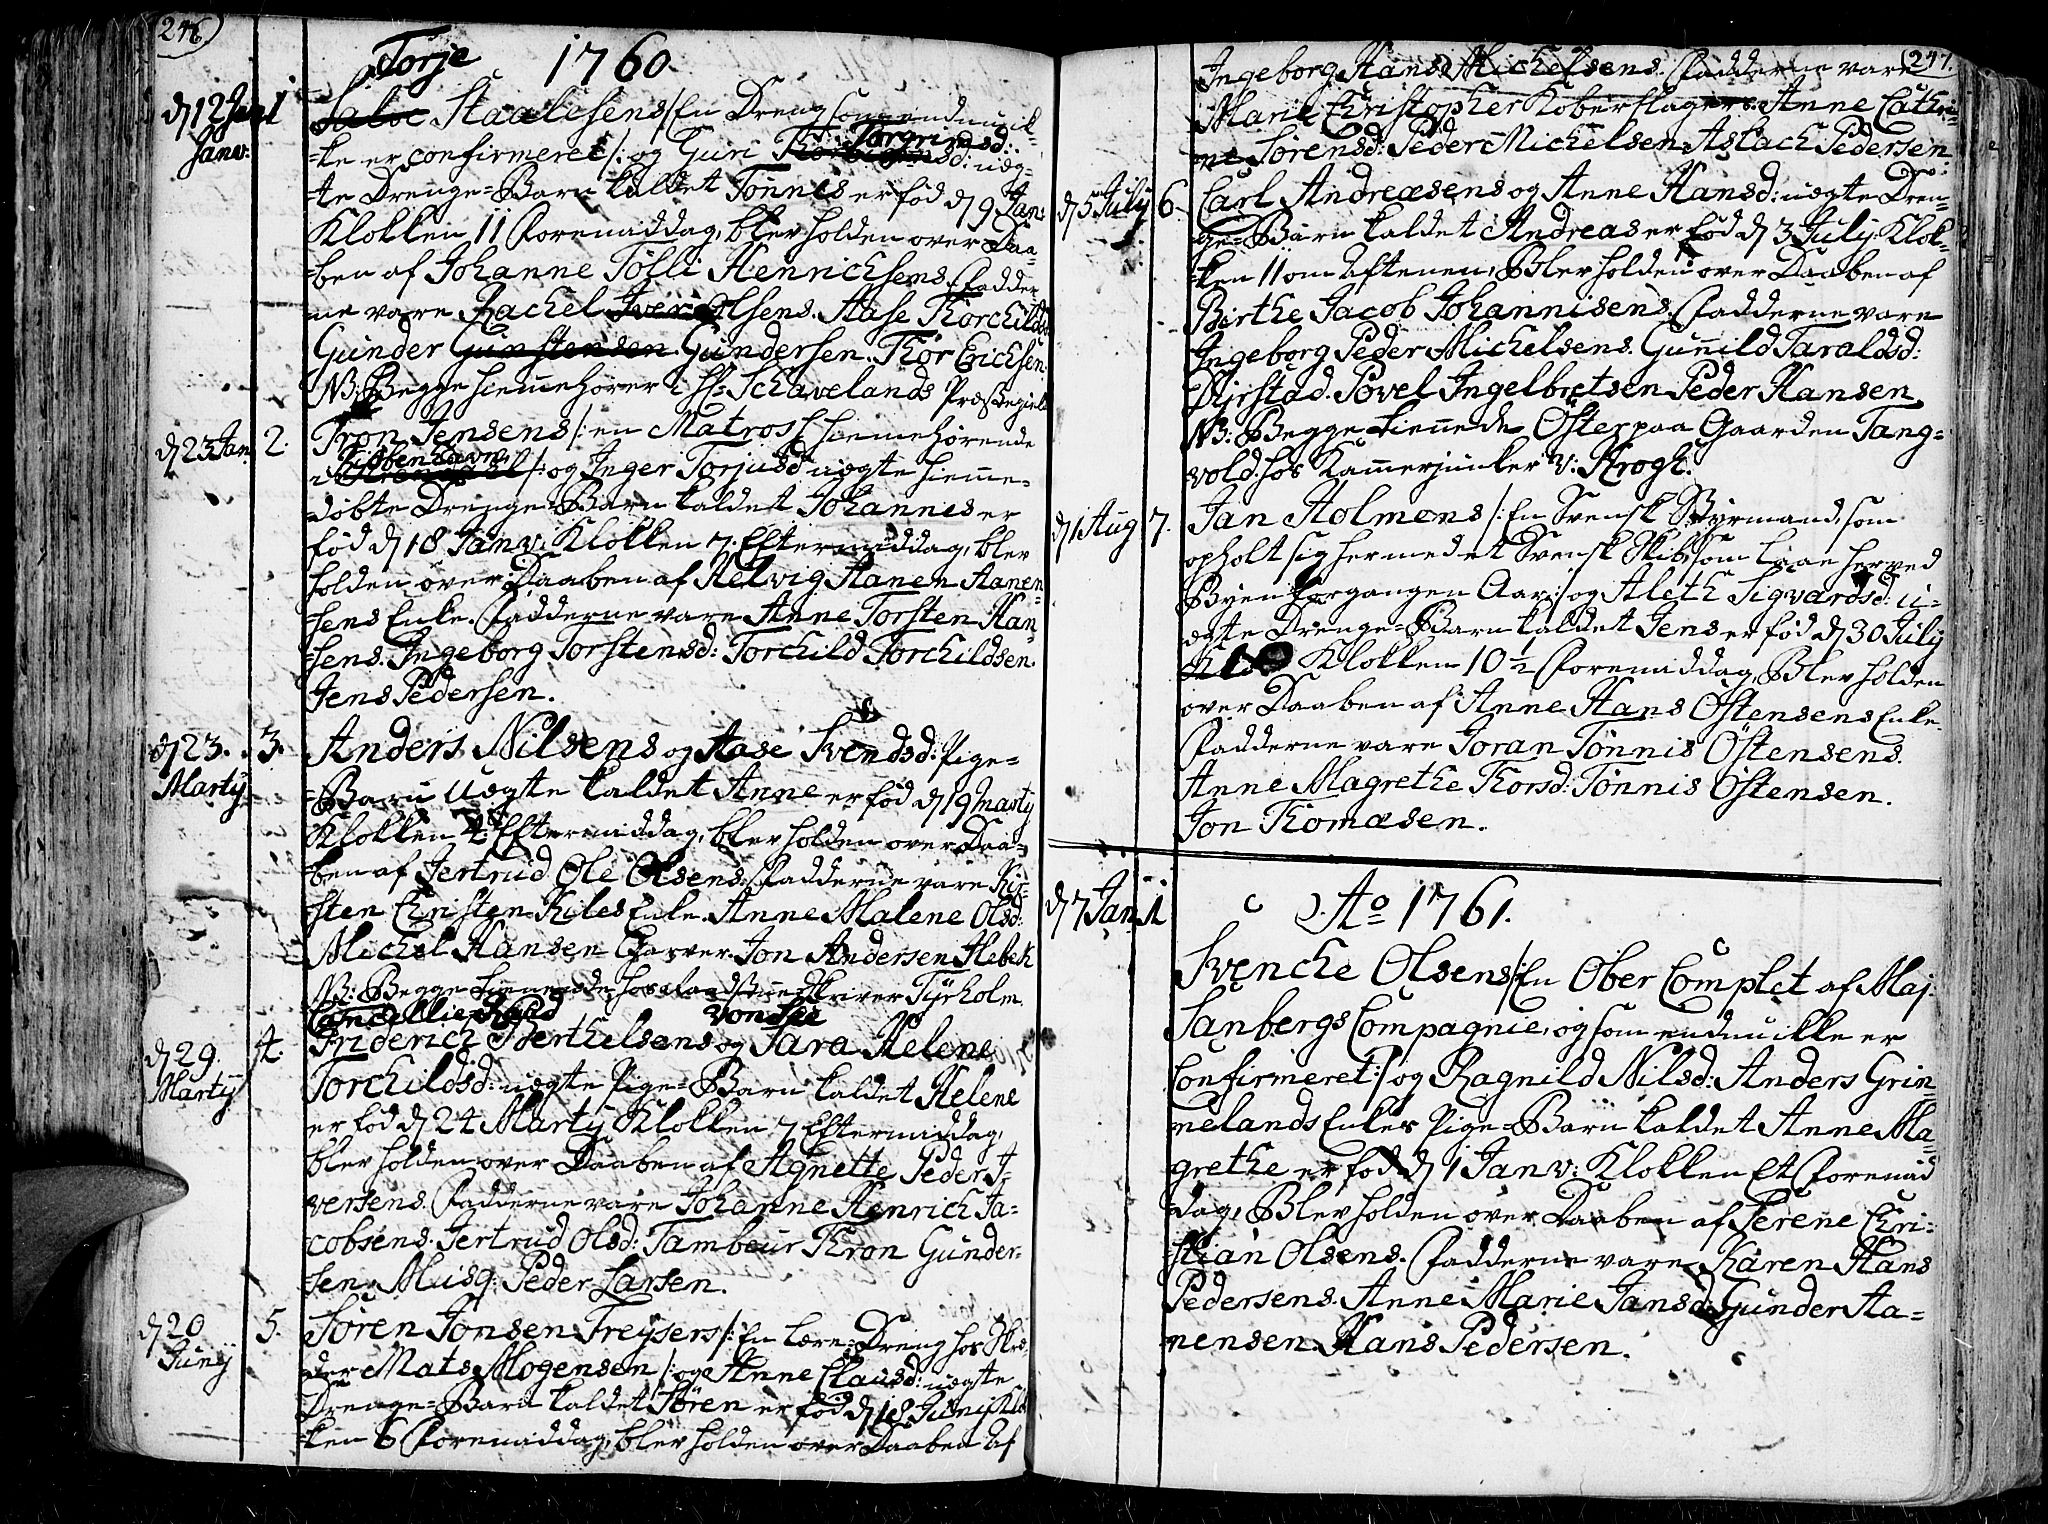 246
Torje 1760
d 12 Jan 1 Staalesens /: En Dreng som endnu ik-
Janv: -ke er confirmeret :/ og Guri Torgrimsd: uæg-
-te Drenge-Barn kaldet Tönnes er fød d 9 Jan:
Klokken 11 Formiddag, blev holden over Daa-
-ben af Johanne Tölli Henrichsens. Fadder-
ne vare Rachel Iver Olsens. Aase Thorchilds
Gunder Gundersen. Thor Erichsen.
NB: Begge hiemehörer i Hr: Schavelands Præstegield
d 23 Jan 2. Tron Jensens /: en Matros hiemehörende
i Kiöbenhavn :/ og Inger Torjusd uægte hieme-
döbte Drenge-Barn kaldet Johannes er
fød d 18 Janv. Klokken 7. Eftermiddag, blev
holden over Daaben af Helvig Aanen Aanen-
sens Enke. Fadderne vare Anne Torsten Han-
-sens. Ingeborg Torstensd: Torchild Torchildsen.
Jens Pedersen.
d 23. 3. Anders Nilsens og Aase Svendsd: Pige-
Martij -Barn uægte kaldet Anne er fød d 19 Martij
Klokken 4 Eftermiddag, blev holden over Daa-
ben af Jertrud Ole Olsens. Fadderne vare Kir-
-sten Christen Kiles Enke. Anne Malene Olsd:
Michel Hansen Garver. Jon Andersen Hebek
NB: Begge tienende hos Skriver Tyrholm.
Cancellie Raad von See
d 29. 4. Friderich Berthelsens og Sara Helene
Martij Torchildsd: uægte Pige-Barn kaldet Helene
er fød d 24 Martij Klokken 7 Eftermiddag,
blev holden over Daaben af Agnette Peder I-
versens. Fadderne vare Johanne Henrich Ja-
cobsens. Jertrud Olsd: Tambour Thron Gunder-
-sen. Musq: Peder Larsen.
d 20 5. Sören Jonsen Treysers /: En Lære-Dreng hos Skræ-
Junij der Mats Mogensen :/ og Anne Clausd: uægte
Drenge-Barn kaldet Sören er fød d 18 Junij Klok-
ken 6 Formiddag, blev holden over Daaben af
247.
Ingeborg Hans Michelsens. Fadderne vare
Marie Christopher Koberslagers. Anne Cathri-
ne Sörensd: Peder Michelsen. Aslach Pedersen.
d 5 July 6. Carl Andreasens og Anne Hansd: uægte Dren-
ge-Barn kaldet Andreas er fød d 3 July Klok-
-ken 11 om Aftenen, Blev holden over Daaben af
Birthe Jacob Johannisens. Fadderne vare
Ingeborg Peder Michelsens. Gunild Taraldsd:
Povel Ingelbretsen Peder Hansen
NB: Begge tienede Österpaa Gaarden Tang-
vold hos Kammerjunker v: Krogh.
d 1 Aug 7. Jan Holmens /: En Svensk Styrmand, som
opholt sig her med et Svensk Skib, som laae her ved
Byen forgangen Aar :/ og Aleth Sigvardsd: u-
ægte Drenge-Barn kaldet Jens er fød d 30 July
Klokken 10 1/2 Formiddag, Blev holden
over Daaben af Anne Hans Östensens Enke.
Fadderne vare Joran Tönnis Östensens.
Anne Magrethe Thorsd: Tönnis Östensen.
Jon Thomæsen.
Ao 1761.
d 7 Jan 1 Svenche Olsens /: En Ober Complet af Maj:
Sanbergs Compagnie, og som endnu ikke er
Confirmeret :/ og Ragnild Nilsd: Anders Grim-
melands Enkes Pige-Barn kaldet Anne Ma-
grethe er fød d 1 Janv: Klokken Et Formid
dag, Blev holden over Daaben af Serene Chri-
-stian Olsens. Fadderne vare Karen Hans
Pedersens. Anne Marie Jansd: Gunder Aa-
nensen. Hans Pedersen.